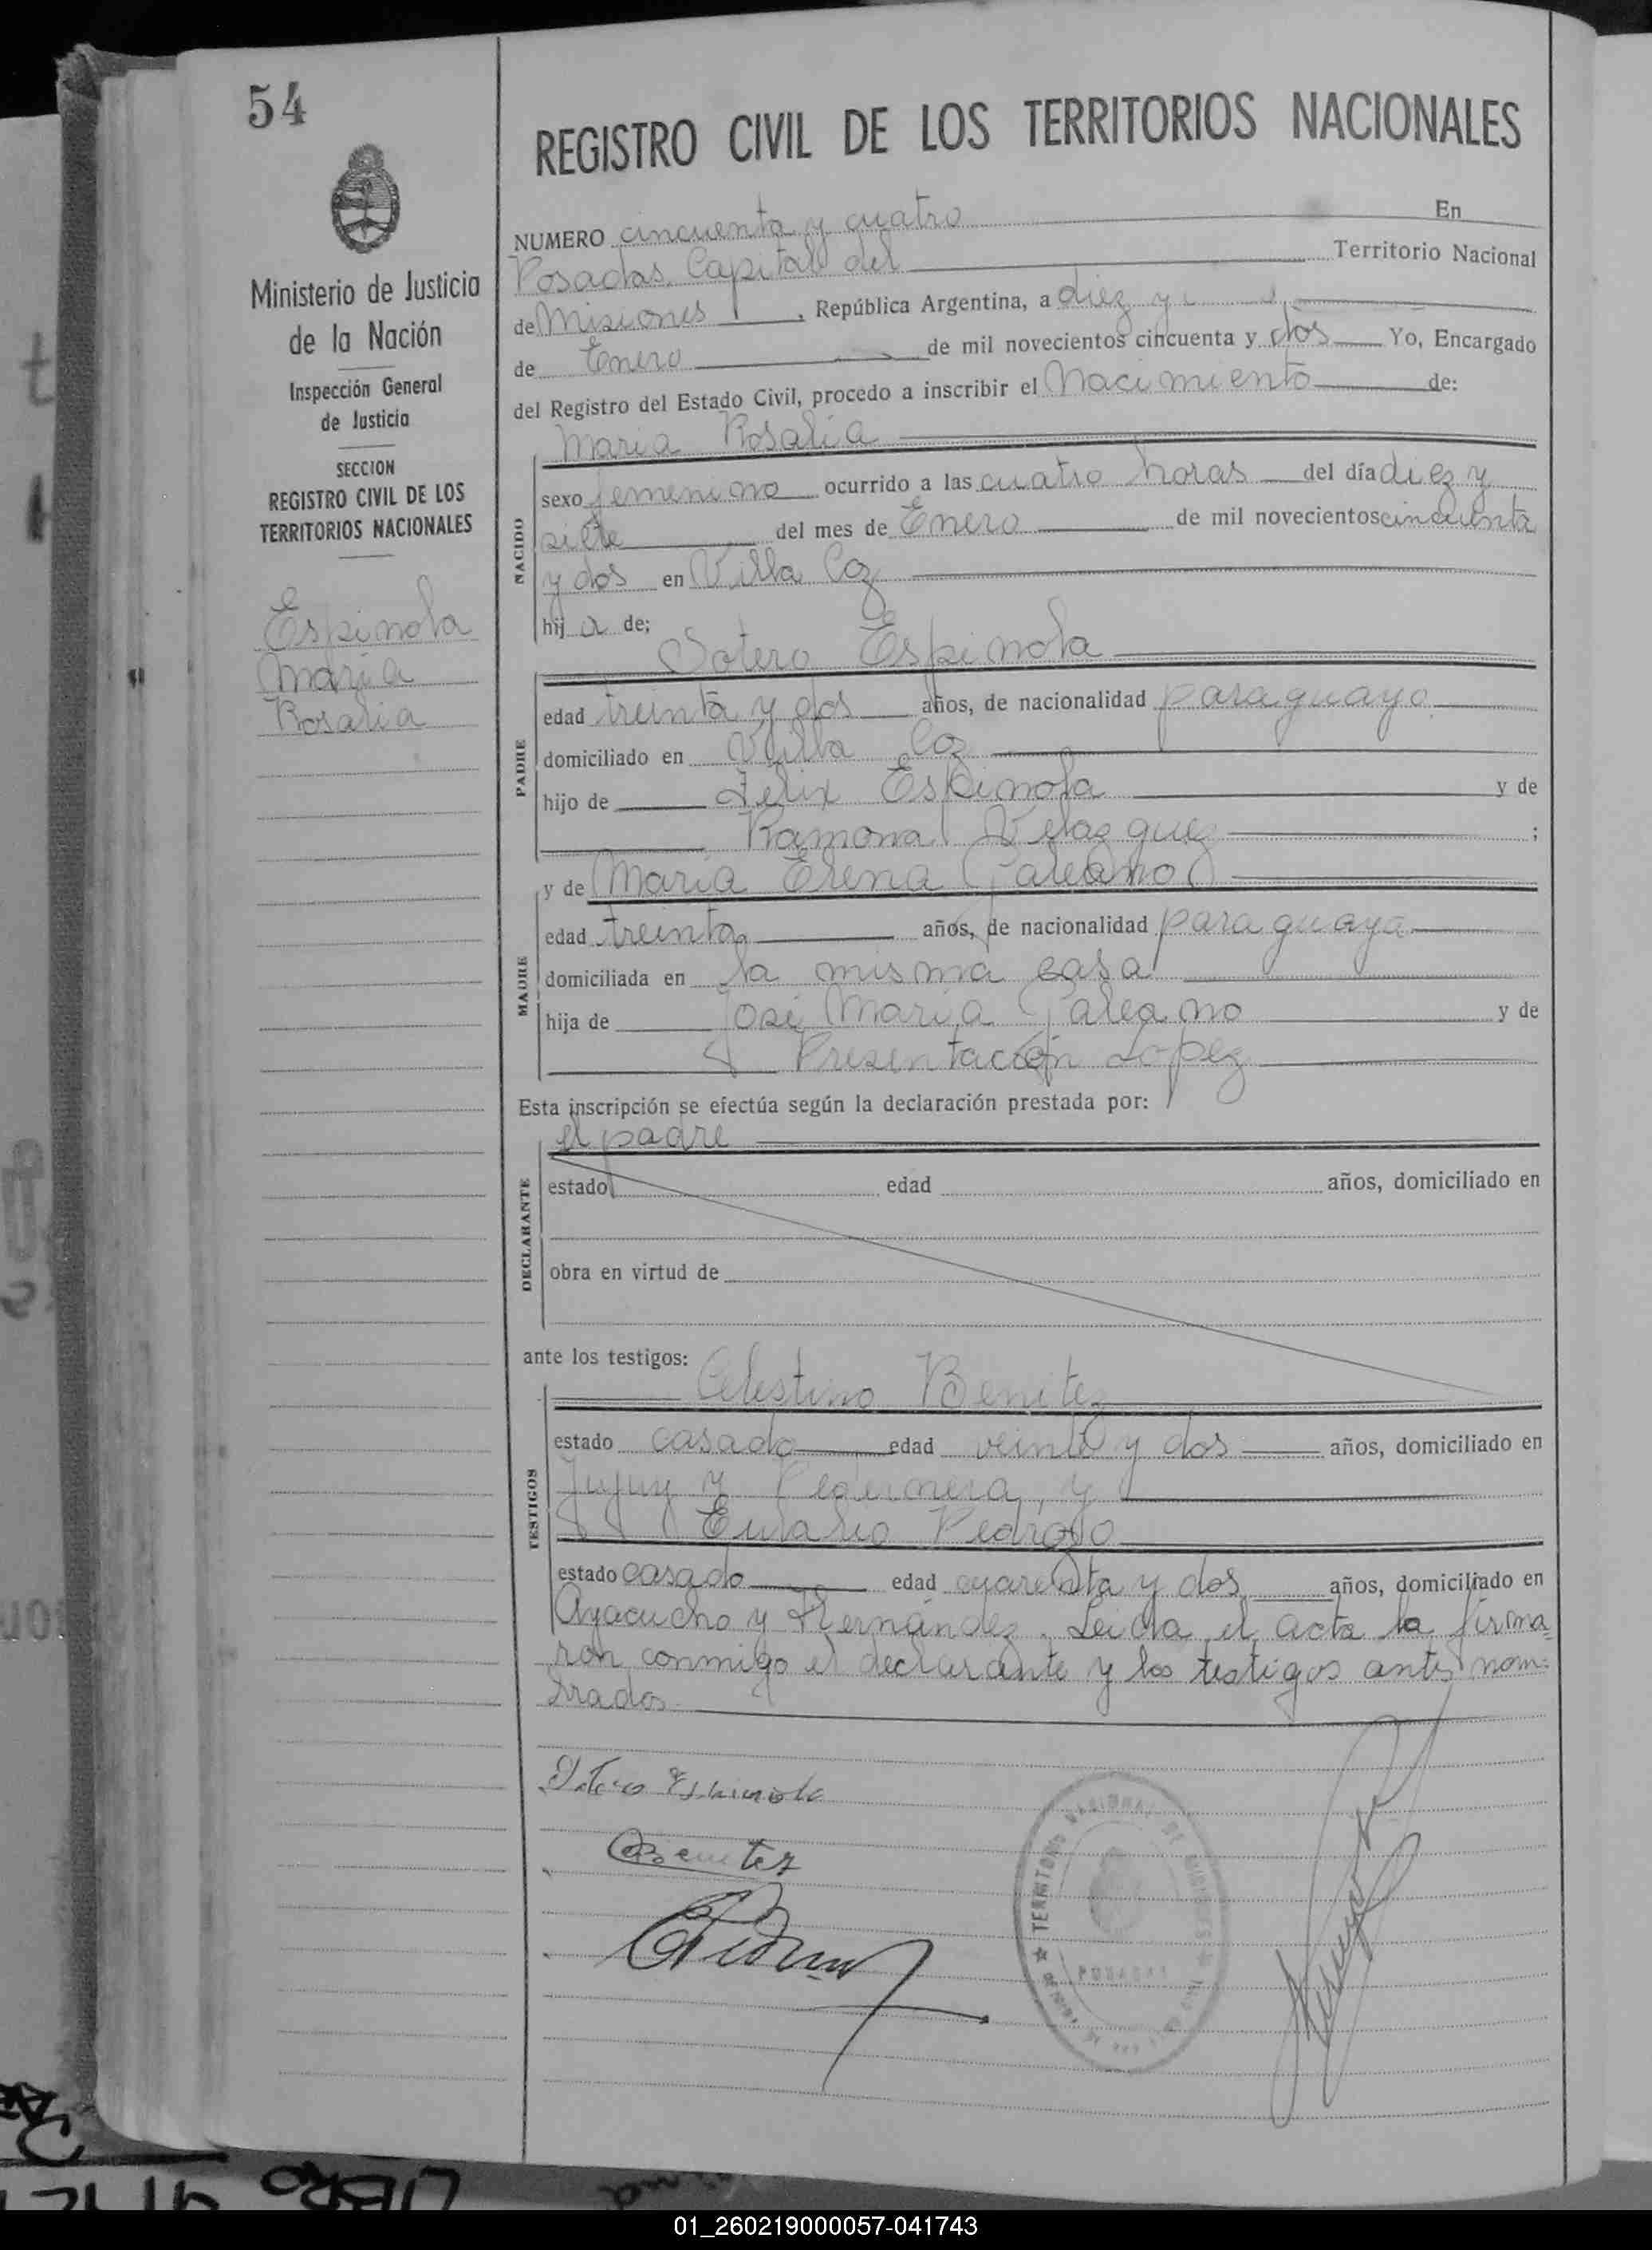 54
Ministerio de Justicia
de la Nación
Inspección General
de Justicia
SECCION
REGISTRO CIVIL DE LOS
TERRITORIOS NACIONALES
Espinola
Maria
Rosalia
REGISTRO CIVIL DE LOS TERRITORIOS NACIONALES
NUMERO cincuenta y cuatro En
Posadas, Capital del Territorio Nacional
de Misiones, República Argentina, a diez y
de Enero de mil novecientos cincuenta y dos Yo, Encargado
del Registro del Estado Civil, procedo a inscribir el Nacimiento de:
Maria Rosalia
NACIDO
sexo femenino ocurrido a las cuatro horas del día diez y
siete del mes de Enero de mil novecientos cincuenta
y dos en Villa Coz
hij a de;
Sotero Espinola
PADRE
edad treinta y dos años, de nacionalidad paraguayo
domiciliado en Villa Coz
hijo de Felix Espinola y de
Ramona Velazquez ;
y de Maria Elena Galeano
MADRE
edad treinta años, de nacionalidad paraguaya
domiciliada en la misma casa
hija de José Maria Galeano y de
Presentación Lopez
Esta inscripción se efectúa según la declaración prestada por:
el padre
DECLARANTE
estado edad años, domiciliado en
obra en virtud de
ante los testigos:
Celestino Benitez
TESTIGOS
estado casado edad veinte y dos años, domiciliado en
Jujuy y Pedernera, y
Eulalio Pedrozo
estado casado edad cuarenta y dos años, domiciliado en
Ayacucho y Hernández. Leida el acta la firma=
ron conmigo el declarante y los testigos antes nom=
brados
Sotero Espinola
CBenitez
TERRITORIO NACIONAL DE MISIONES
POSADAS
LIBRO
01_260219000057-041743